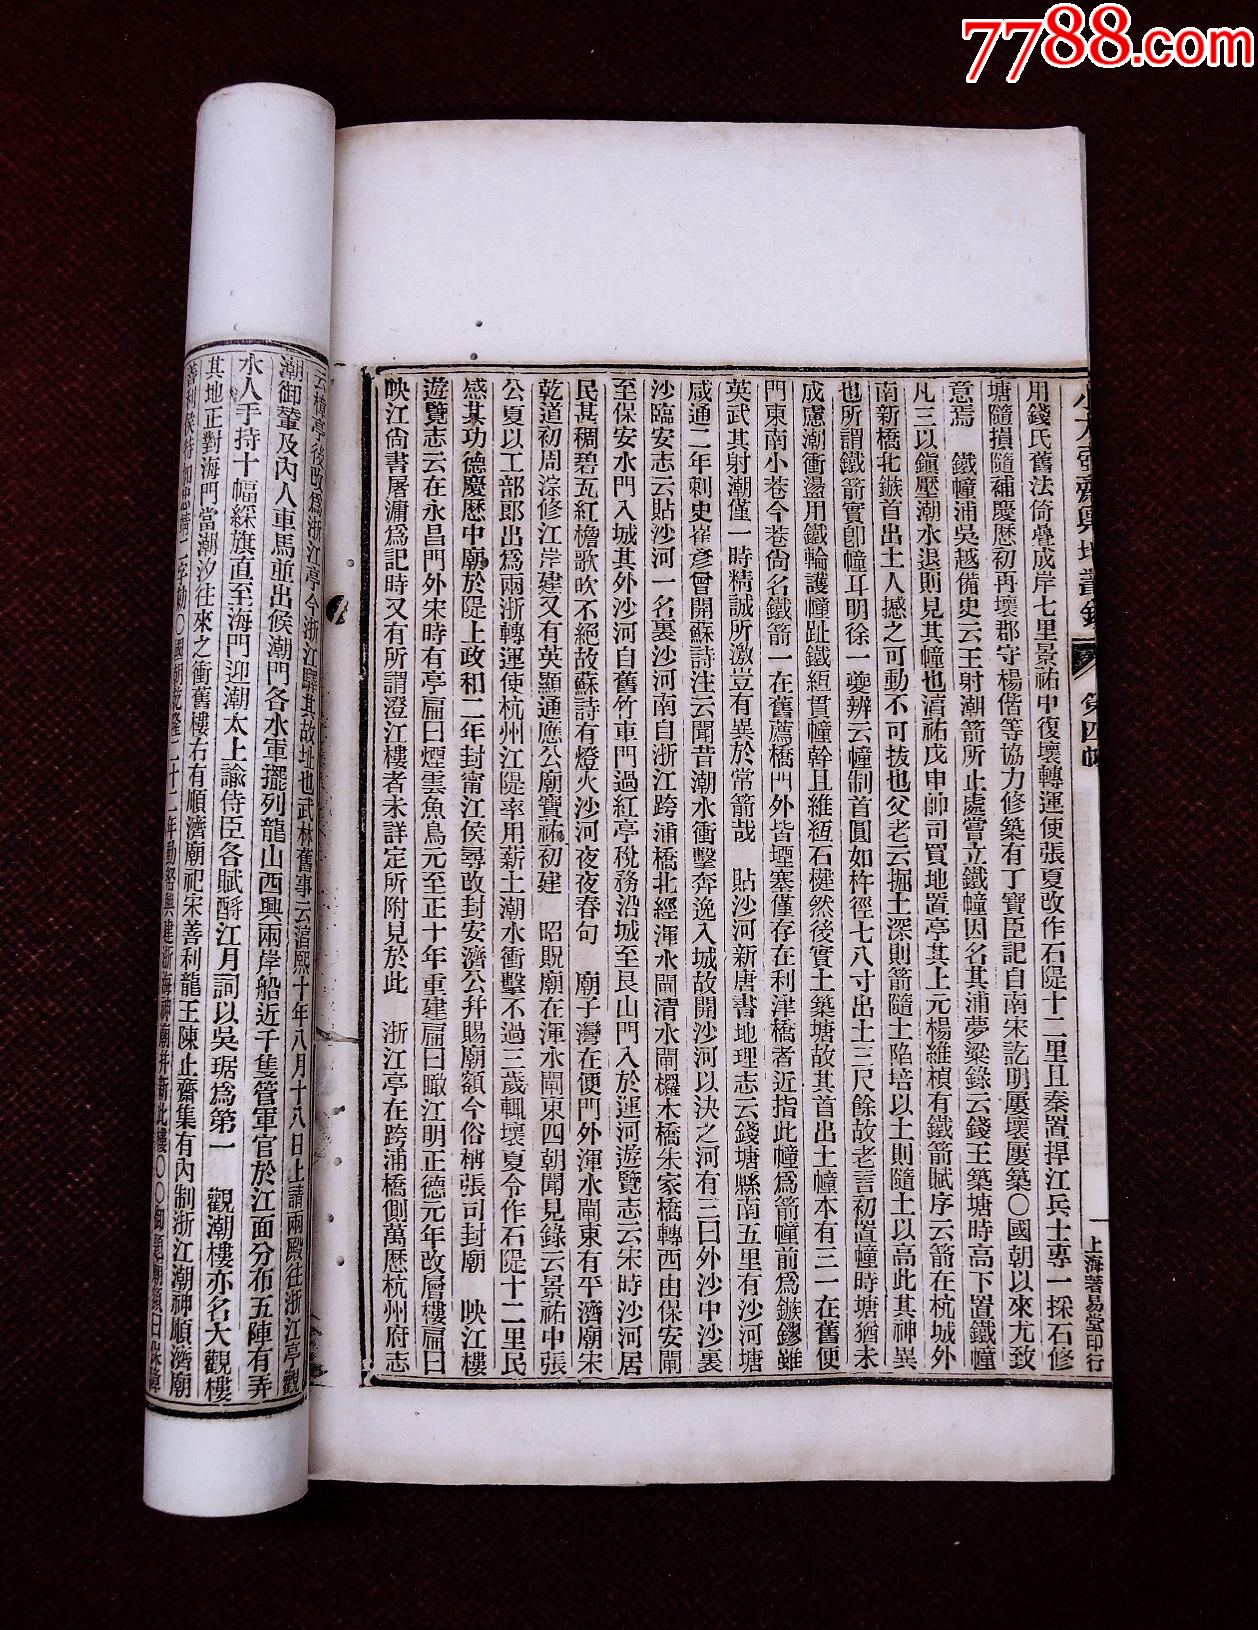 7788.com
小方壺齋輿地叢鈔 第四帙 一 上海著易堂印行
用錢氏舊法倚疊成岸七里景祐中復壞轉運使張夏改作石隄十二里且奏置捍江兵士專一採石修
塘隨損隨補慶歷初再壞郡守楊偕等協力修築有丁寶臣記自南宋訖明屢壞屢築〇國朝以來尤致
意焉 鐵幢浦吳越備史云王射潮箭所止處嘗立鐵幢因名其浦夢粱錄云錢王築塘時高下置鐵幢
凡三以鎮壓潮水退則見其幢也淳祐戊申帥司買地置亭其上元楊維楨有鐵箭賦序云箭在杭城外
南新橋北鏃首出土人撼之可動不可拔也父老云掘土深則箭隨土陷培以土則隨土以高此其神異
也所謂鐵箭實卽幢耳明徐一夔辨云幢制首圓如杵徑七八寸出土三尺餘故老言初置幢時塘猶未
成慮潮衝盪用鐵輪護幢趾鐵絙貫幢幹且維絙石楗然後實土築塘故其首出土幢本有三一在舊便
門東南小巷今巷尙名鐵箭一在舊薦橋門外皆堙塞僅存在利津橋者近指此幢爲箭幢前爲鏃鏐雖
英武其射潮僅一時精誠所激豈有異於常箭哉 貼沙河新唐書地理志云錢塘縣南五里有沙河塘
咸通二年刺史崔彥曾開蘇詩注云聞昔潮水衝擊奔逸入城故開沙河以決之河有三曰外沙中沙裏
沙臨安志云貼沙河一名裏沙河南自浙江跨浦橋北經渾水閘清水閘欏木橋朱家橋轉西由保安閘
至保安水門入城其外沙河自舊竹車門過紅亭稅務沿城至艮山門入於運河遊覽志云宋時沙河居
民甚稠碧瓦紅檐歌吹不絕故蘇詩有燈火沙河夜夜春句 廟子灣在便門外渾水閘東有平濟廟宋
乾道初周淙修江岸建又有英顯通應公廟寶祐初建 昭貺廟在渾水閘東四朝聞見錄云景祐中張
公夏以工部郎出爲兩浙轉運使杭州江隄率用薪土潮水衝擊不過三歲輒壞夏令作石隄十二里民
感其功德慶歷中廟於隄上政和二年封甯江侯尋改封安濟公幷賜廟額今俗稱張司封廟 映江樓
遊覽志云在永昌門外宋時有亭扁曰煙雲魚鳥元至正十年重建扁曰瞰江明正德元年改層樓扁曰
映江尙書屠滽爲記時又有所謂澄江樓者未詳定所附見於此 浙江亭在跨浦橋側萬歷杭州府志
云樟亭後改爲浙江亭今浙江驛其故址也武林舊事云淳熙十年八月十八日上請兩殿往浙江亭觀
潮御輦及內人車馬並出候潮門各水軍擺列龍山西興兩岸船近千隻管軍官於江面分布五陣有弄
水人手持十幅綵旗直至海門迎潮太上諭侍臣各賦酹江月詞以吳琚爲第一 觀潮樓亦名大觀樓
其地正對海門當潮汐往來之衝舊樓右有順濟廟祀宋善利龍王陳止齋集有內制浙江潮神順濟廟
善利侯特加忠靖二字勅〇國朝乾隆二十二年勅 建浙海神廟幷新此樓〇〇御題廟額曰保障